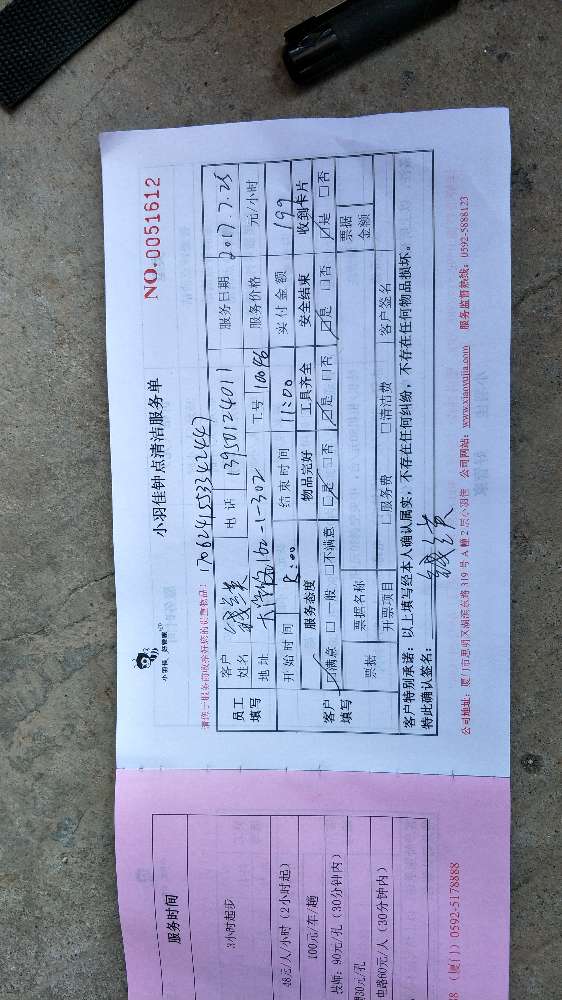 小羽佳 好管家
小羽佳钟点清洁服务单
NO. 0051612
请您于服务前收拾好您的贵重物品!
员工填写
客户姓名
电话 13950124011
服务日期 2017.7.25
地址
工号 10096
服务价格 元/小时
开始时间 8:00
结束时间 11:00
实付金额 199
客户填写
服务态度 物品完好 工具齐全 安全结束 收到卡片
☑满意 □一般 □不满意 ☑是 □否 ☑是 □否 ☑是 □否 ☑是 □否
票据 票据名称 票据金额
开票项目 □服务费 □清洁费 客户签名
客户特别承诺:以上填写经本人确认属实,不存在任何纠纷,不存在任何物品损坏。
特此确认签名:
公司地址:厦门市思明区湖滨东路319号A幢2层小羽佳 公司网站:www.xiaoyujia.com 服务监督热线:0592-5888123
服务时间
3小时起步
48元/人/小时(2小时起)
100元/年/趟
技师:90元/孔(30分钟内)
30元/孔
电路60元/人(30分钟内)
(厦门)0592-5178888